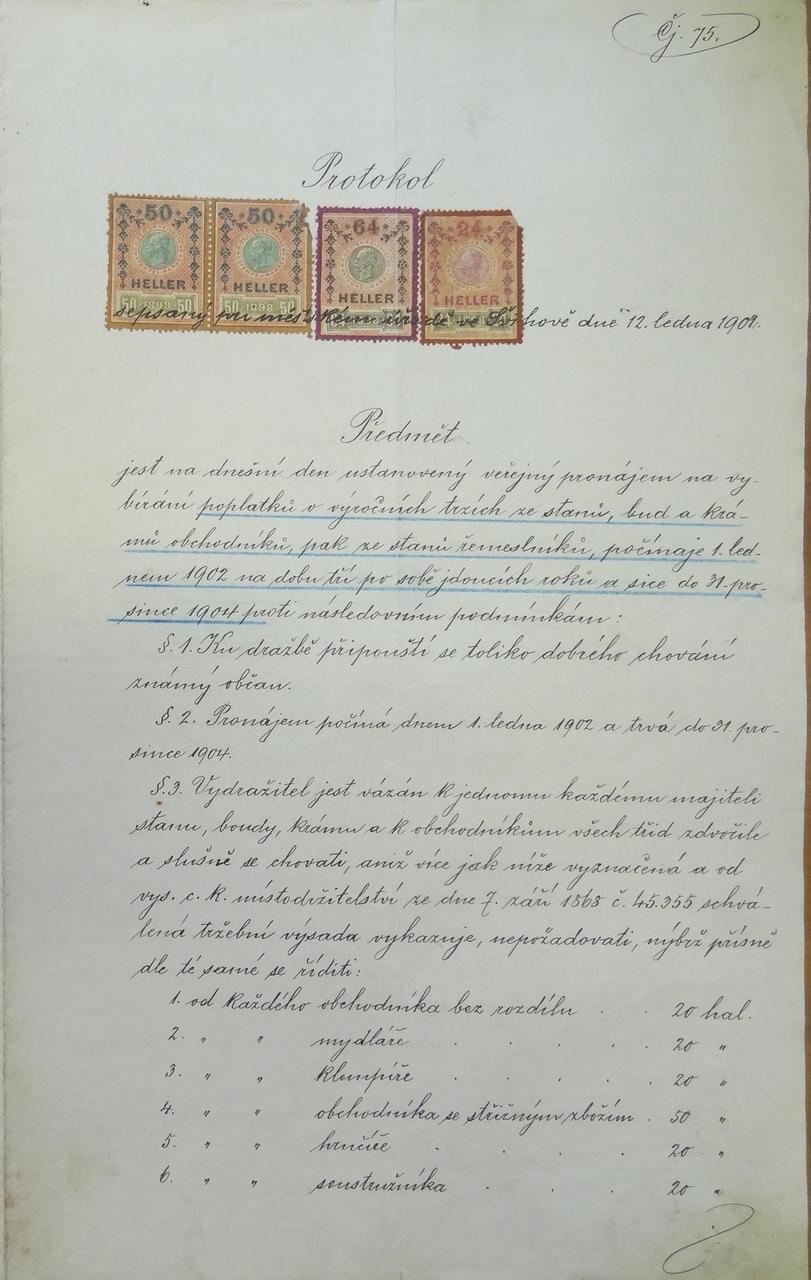 Čj. 75.
Protokol
50 50 64 24
HELLER HELLER HELLER HELLER
50 1898 50 50 1898 50
sepsaný při městském úřadě ve dne 12. ledna 1902.
Předmět
jest na dnešní den ustanovený veřejný pronájem na vy-
bírání poplatků o výročních trzích ze stanů, bud a krá-
mů obchodníků, pak ze stanů řemeslníků, počínaje 1. led-
nem 1902 na dobu tří po sobě jdoucích roků a sice do 31. pro-
since 1904 proti následovním podmínkám:
§. 1. Ku dražbě připouští se toliko dobrého chování
známý občan.
§. 2. Pronájem počíná dnem 1. ledna 1902 a trvá do 31. pro-
since 1904.
§. 3. Vydražitel jest vázán k jednomu každému majiteli
stanu, boudy, krámu a k obchodníkům všech tříd zdvořile
a slušně se chovati, aniž více jak níže vyznačená a od
vys. c. k. místodržitelství ze dne 7. září 1868 č. 45.355 schvá-
lená tržební výsada vykazuje, nepožadovati, nýbrž přísně
dle té samé se říditi:
1. od každého obchodníka bez rozdílu . . 20 hal.
2. " " mydláře . . . . . 20 "
3. " " klempíře . . . . . 20 "
4. " " obchodníka se střižným zbožím . 50 "
5. " " hrnčíře . . . 20 "
6. " " soustružníka . . . 20 "